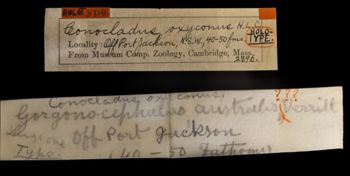 HOLOTYPE.
Conocladus oxyconus H.L.C.
HOLO-
TYPE.
Locality: Off Port Jackson, N.S.W, 40-50 fms.
From Museum Comp. Zoology, Cambridge, Mass.
2890.
Conocladus oxyconus.
???
Gorgonocephalus australis, Verrill
one Off Port Jackson
Type. 40-50 Fathoms